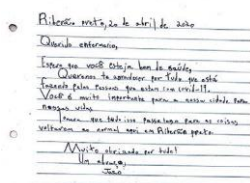 Ribeirão preto, 20 de abril de 2020
Querido enfermeiro,
Espero que você esteja bem de saúde,
Queremos te agradecer por tudo que está
fazendo pelas pessoas que estam com covid-19.
Você é muito importante para a nossa cidade
nossas vidas
que tudo isso passe logo para as coisas
voltarem ao normal aqui em Ribeirão preto.
Muito obrigado por tudo!
Um abraço,
João